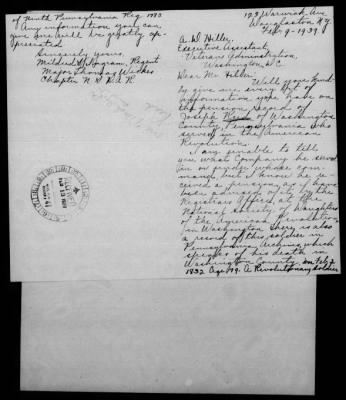 of Ninth Pennsylvania Reg 1780
Any information you can
give me will be greatly ap-
preciated
Sincerely yours,
Mildred Ingram, Regent
Major Thomas Wickes
Chapter N.S.D.A.R.
123 Warwick Ave
Douglaston N.Y.
Feb 9 - 1939.
A. D. Hiller,
Executive Assistant
Veterans Administration,
Washington, D.C.
Dear Mr. Hiller:
Will you kind-
ly give me every bit of
information you have on
the pension record of
Joseph of Washington
County, Pennsylvania who
served in the American
Revolution.
I am unable to tell
you what Company he served
in or under whose com-
mand but I know he re-
ceived a pension as I have
been advised by the
Registrars Office, at the
National Society of Daughters
of the American Revolution
in Washington there is also
a record of this soldier in
Pennsylvania Archives which
speaks of his death in
Washington County, on Feb
1832 Age 79. A Revolutionary Soldier